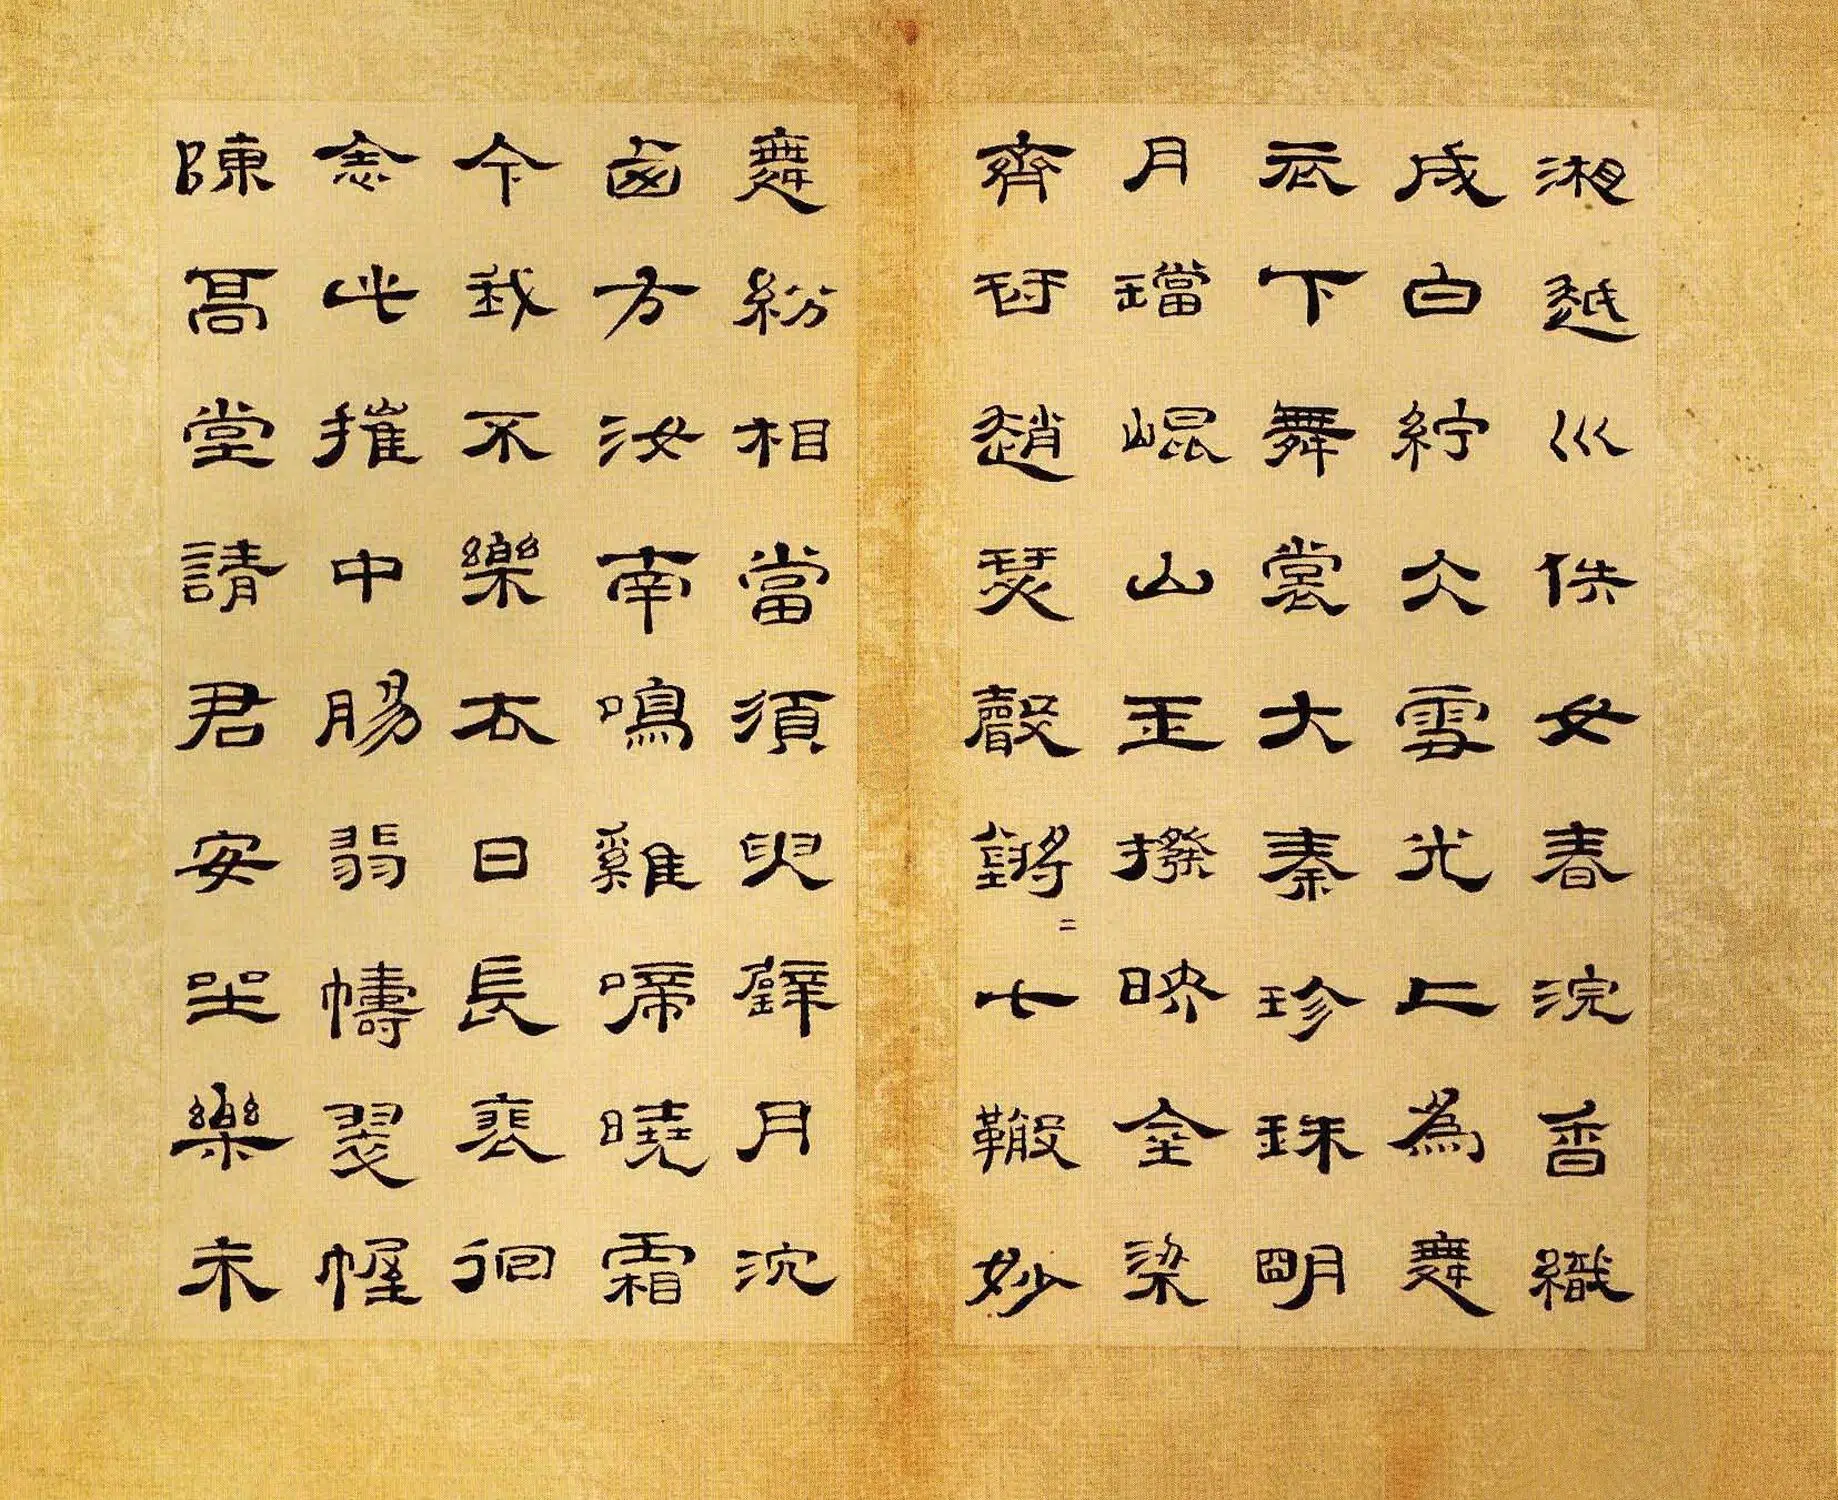 湘越巛佚女春浣香織
成白紵仌雪光上為舞
衣下舞裳大秦珍珠明
月璫崐山玉撥映金梁
齊琴趙瑟聲鏘二七鞶妙
舞紛相當須臾璧月沈
卤方汝南鳴雞啼曉霜
今我不樂去日長裴徊
念此摧中腸翡幬翠幄
陳高堂請君安坐樂未